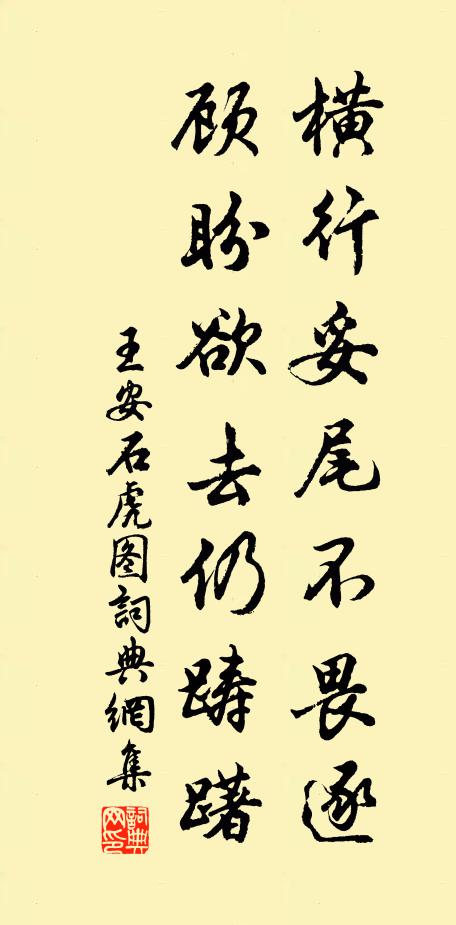 横行妥尾不畏逐
顾盼欲去仍踌躇
王安石虎图詞典網集
詞典网印